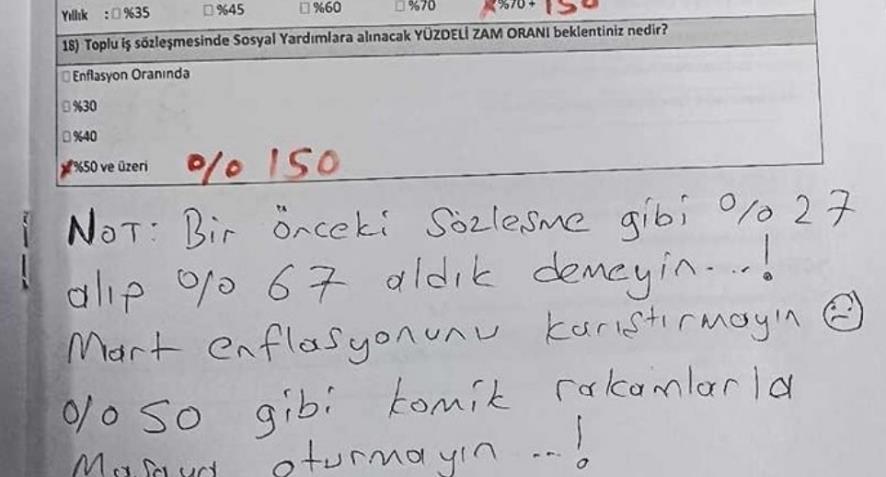 Yıllık : %35 %45 %60 %70 %70+ 150
18) Toplu iş sözleşmesinde Sosyal Yardımlara alınacak YÜZDELİ ZAM ORANI beklentiniz nedir?
Enflasyon Oranında
%30
%40
%50 ve üzeri % 150
NOT: Bir önceki Sözleşme gibi % 27
alıp % 67 aldık demeyin...!
Mart enflasyonunu karıştırmayın
% 50 gibi komik rakamlarla
Masaya oturmayın ...!